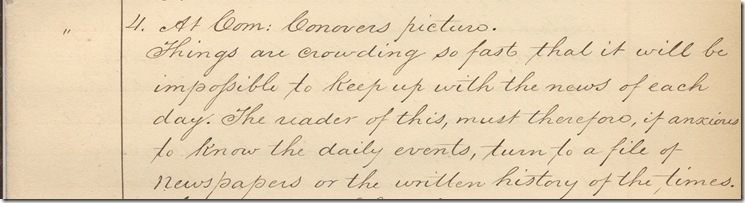 " 4. At Com: Conovers picture.
Things are crowding so fast that it will be
impossible to keep up with the news of each
day. The reader of this, must therefore, if anxious
to know the daily events, turn to a file of
newspapers or the written history of the times.